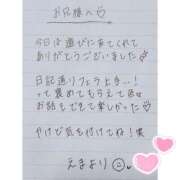 お兄様へ♡
今日は遊びに来てくれて
ありがとうございました
日記通りフェラ上手…!
って褒めてもらえて
お話もできて楽しかった
やけど気を付けてね!笑
えまより